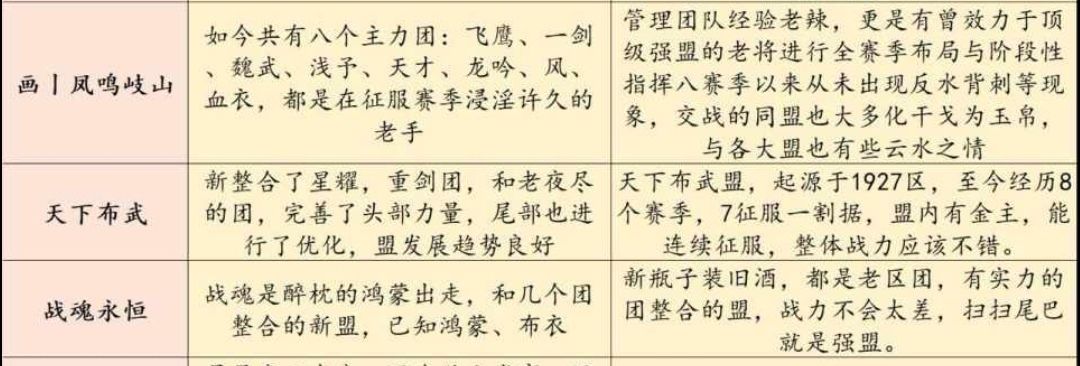 画丨凤鸣岐山
如今共有八个主力团：飞鹰、一剑
、魏武、浅予、天才、龙吟、风、
血衣，都是在征服赛季浸淫许久的
老手
管理团队经验老辣，更是有曾效力于顶
级强盟的老将进行全赛季布局与阶段性
指挥八赛季以来从未出现反水背刺等现
象，交战的同盟也大多化干戈为玉帛，
与各大盟也有些云水之情
天下布武
新整合了星耀，重剑团，和老夜尽
的团，完善了头部力量，尾部也进
行了优化，盟发展趋势良好
天下布武盟，起源于1927区，至今经历8
个赛季，7征服一割据，盟内有金主，能
连续征服，整体战力应该不错。
战魂永恒
战魂是醉枕的鸿蒙出走，和几个团
整合的新盟，已知鸿蒙、布衣
新瓶子装旧酒，都是老区团，有实力的
团整合的盟，战力不会太差，扫扫尾巴
就是强盟。